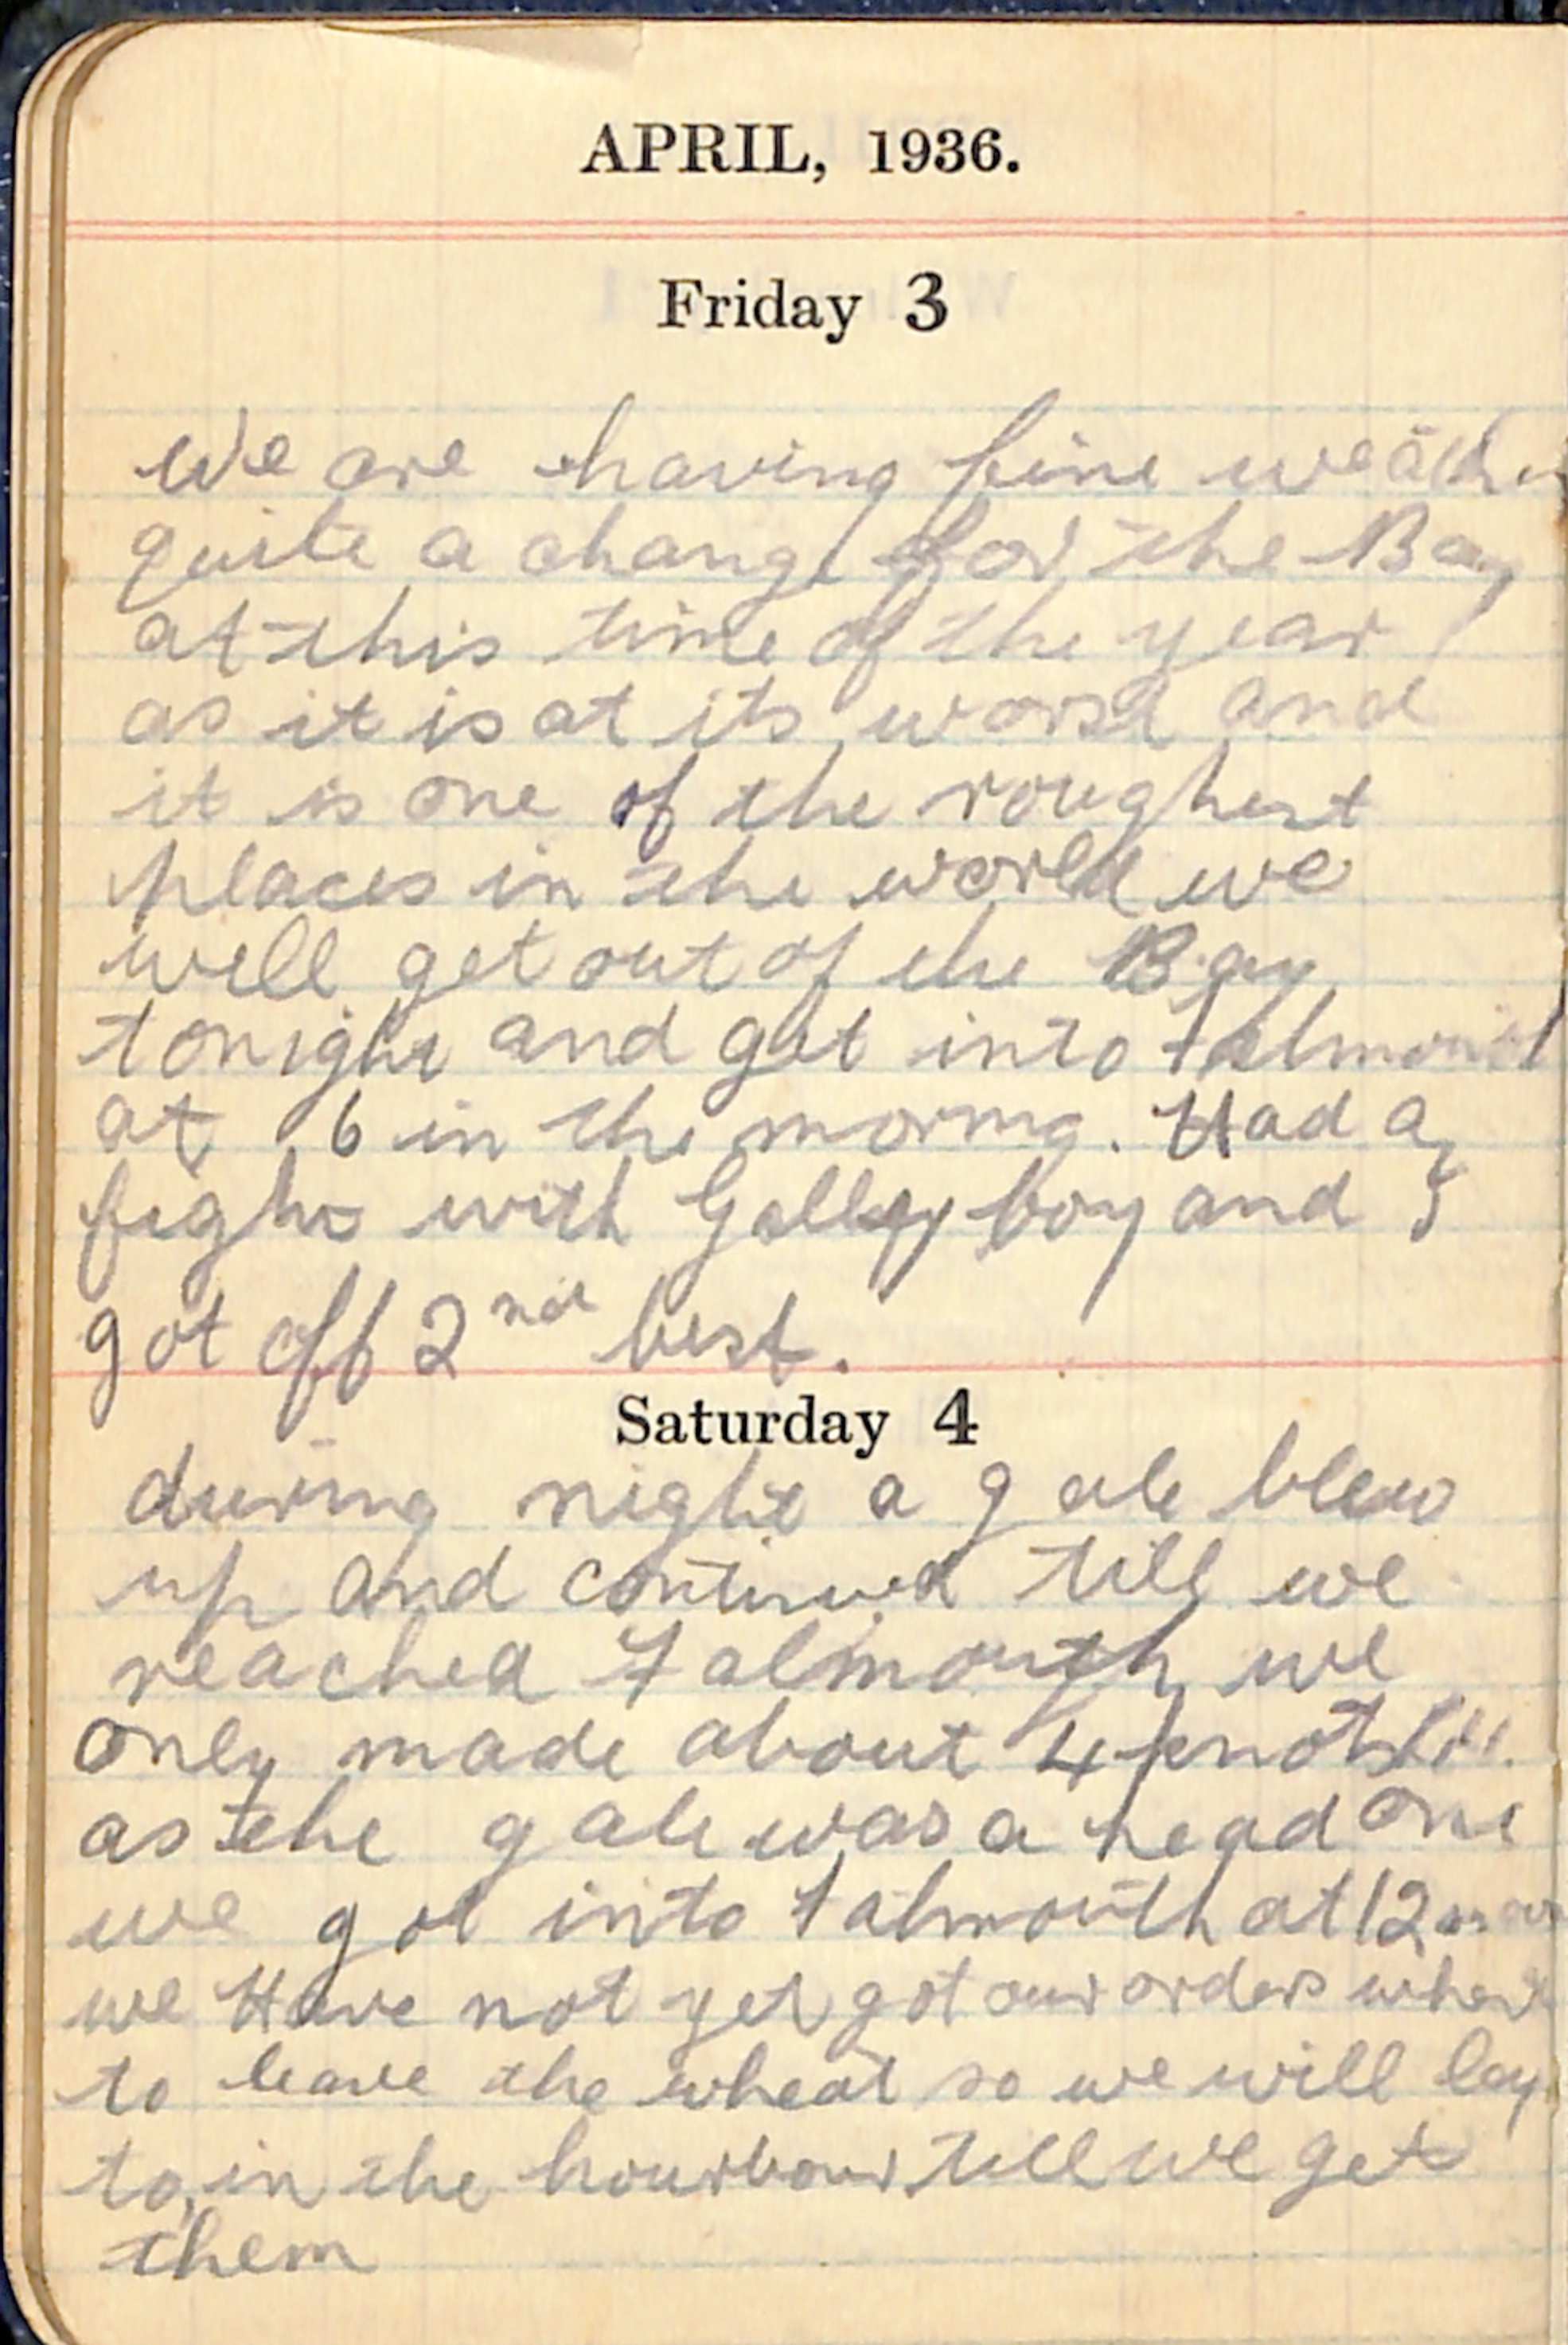 APRIL, 1936.
Friday 3
We are having fine weather
quite a change for the Bay
at this time of the year
as it is at its worst and
it is one of the roughest
places in the world we
will get out of the Bay
tonight and get into Falmouth
at 6 in the morning. Had a
fight with Galley boy and I
got off 2nd best.
Saturday 4
during night a gale blew
up and continued till we
reached Falmouth we
only made about 4 knots
as the gale was a head one
we got into Falmouth at 12
we Have not yet got our orders where
to leave the wheat so we will lay
to in the hourbour till we get
them